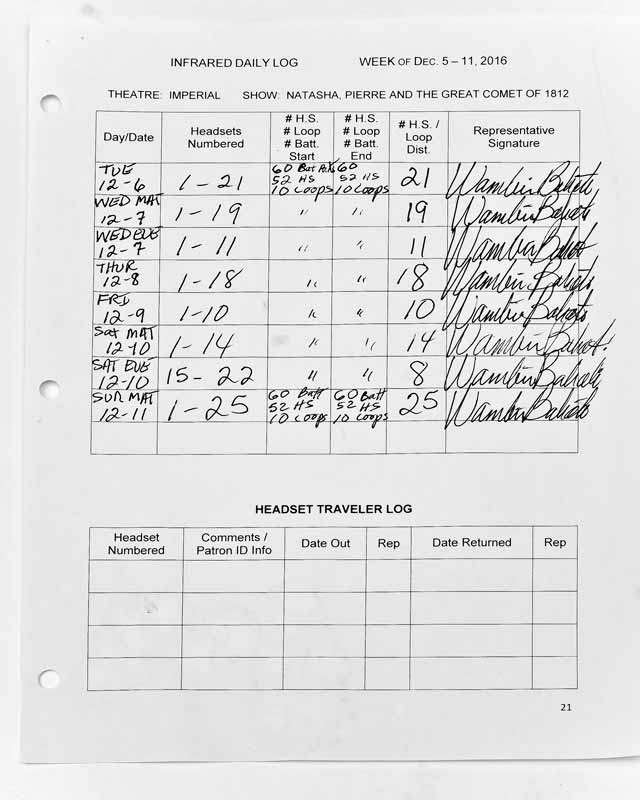 INFRARED DAILY LOG WEEK OF DEC. 5 – 11, 2016
THEATRE: IMPERIAL SHOW: NATASHA, PIERRE AND THE GREAT COMET OF 1812
Day/Date Headsets Numbered # H.S. # Loop # Batt. Start # H.S. # Loop # Batt. End # H.S. / Loop Dist. Representative Signature
TUE 12-6 1-21 60 Bat 52 HS 10 Loops 60 52 HS 10 Loops 21
WED MAT 12-7 1-19 " " 19
WED EVE 12-7 1-11 " " 11
THUR 12-8 1-18 " " 18
FRI 12-9 1-10 " " 10
Sat MAT 12-10 1-14 " " 14
SAT EVE 12-10 15-22 " " 8
SUN MAT 12-11 1-25 60 Batt 52 HS 10 Loops 60 Batt 52 HS 10 Loops 25
HEADSET TRAVELER LOG
Headset Numbered Comments / Patron ID Info Date Out Rep Date Returned Rep
21